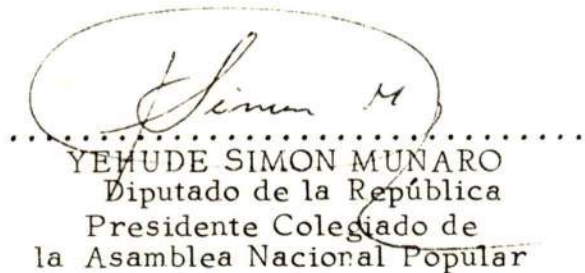 Simon M
YEHUDE SIMON MUNARO
Diputado de la República
Presidente Colegiado de
la Asamblea Nacional Popular